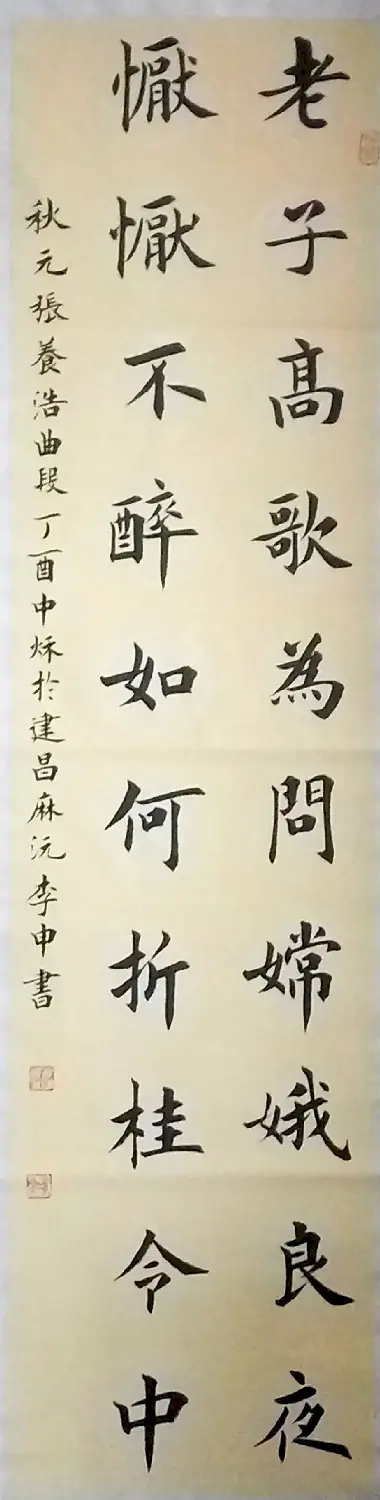 老子高歌為問嫦娥良夜
懨懨不醉如何折桂令中
秋元張養浩曲段丁酉中秌於建昌麻沅李申書